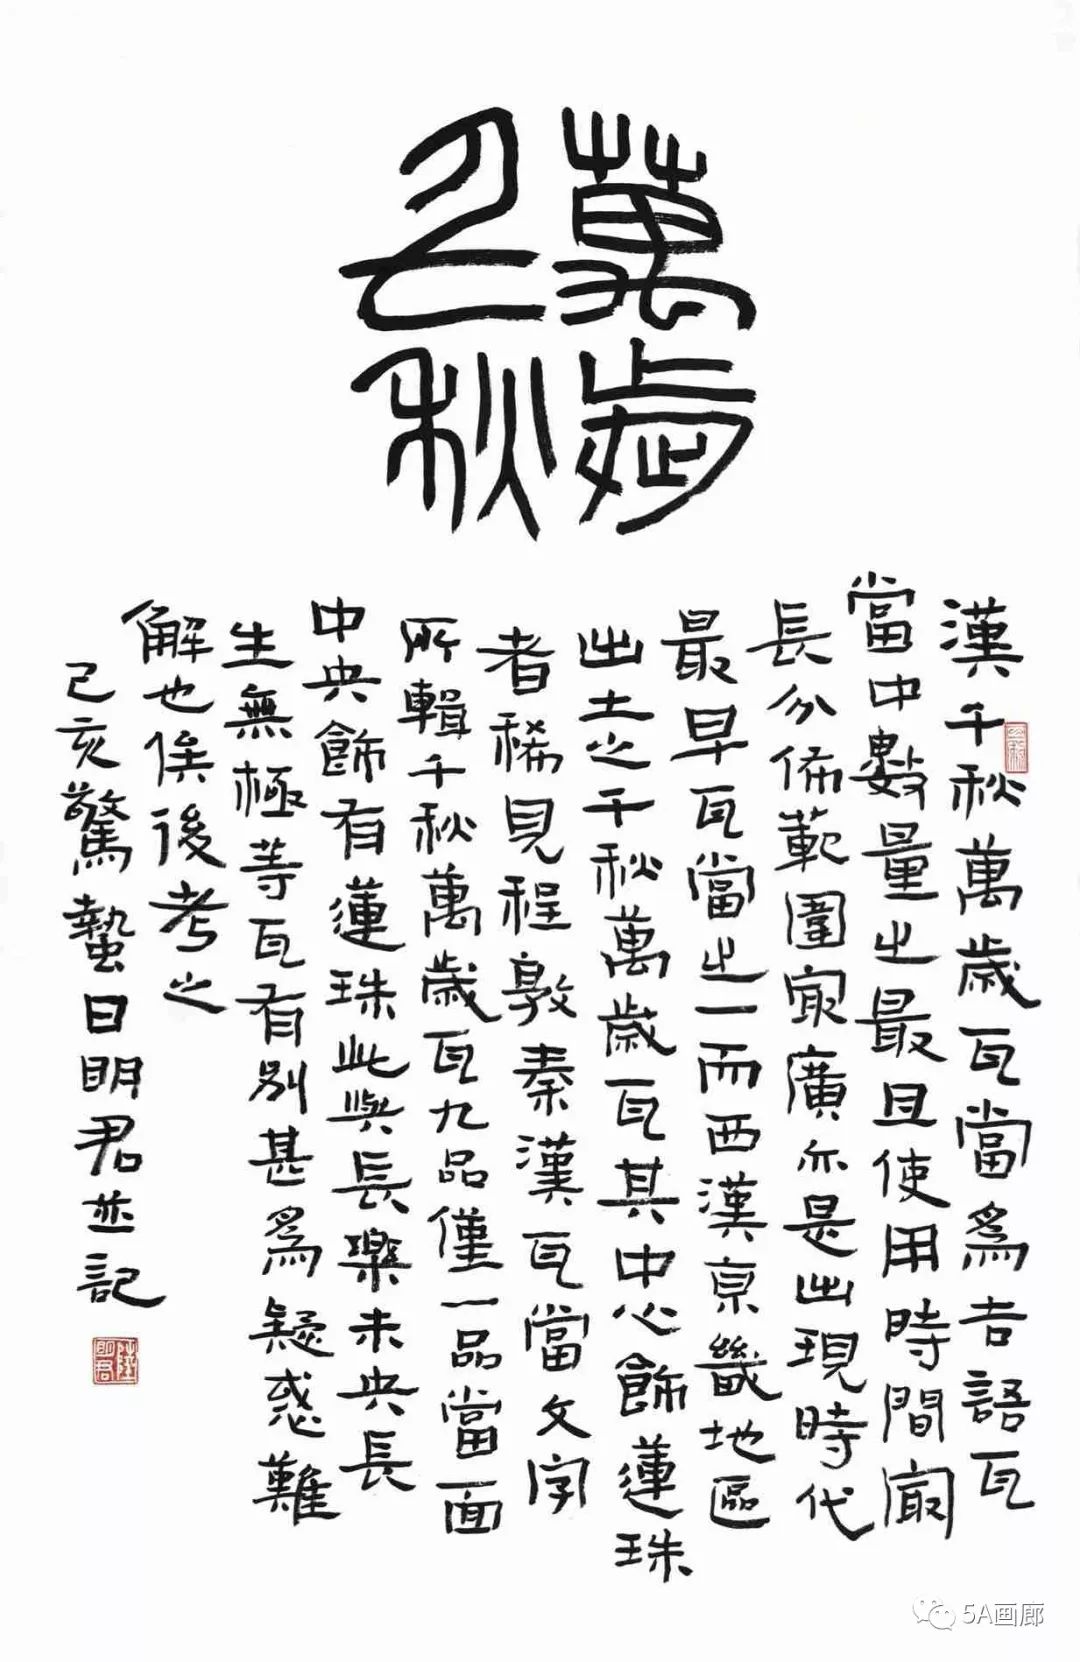 萬歲
千秋
漢千秋萬歲瓦當爲吉語瓦
當中數量之最且使用時間冣
長分佈範圍冣廣亦是出現時代
最早瓦當之一而西漢京畿地區
出土之千秋萬歲瓦其中心飾蓮珠
者稀見程敦秦漢瓦當文字
所輯千秋萬歲瓦九品僅一品當面
中央飾有蓮珠此與長樂未央長
生無極等瓦有别甚爲疑惑難
解也俟後考之
己亥驚蟄日明君並記
陸明君
5A画廊